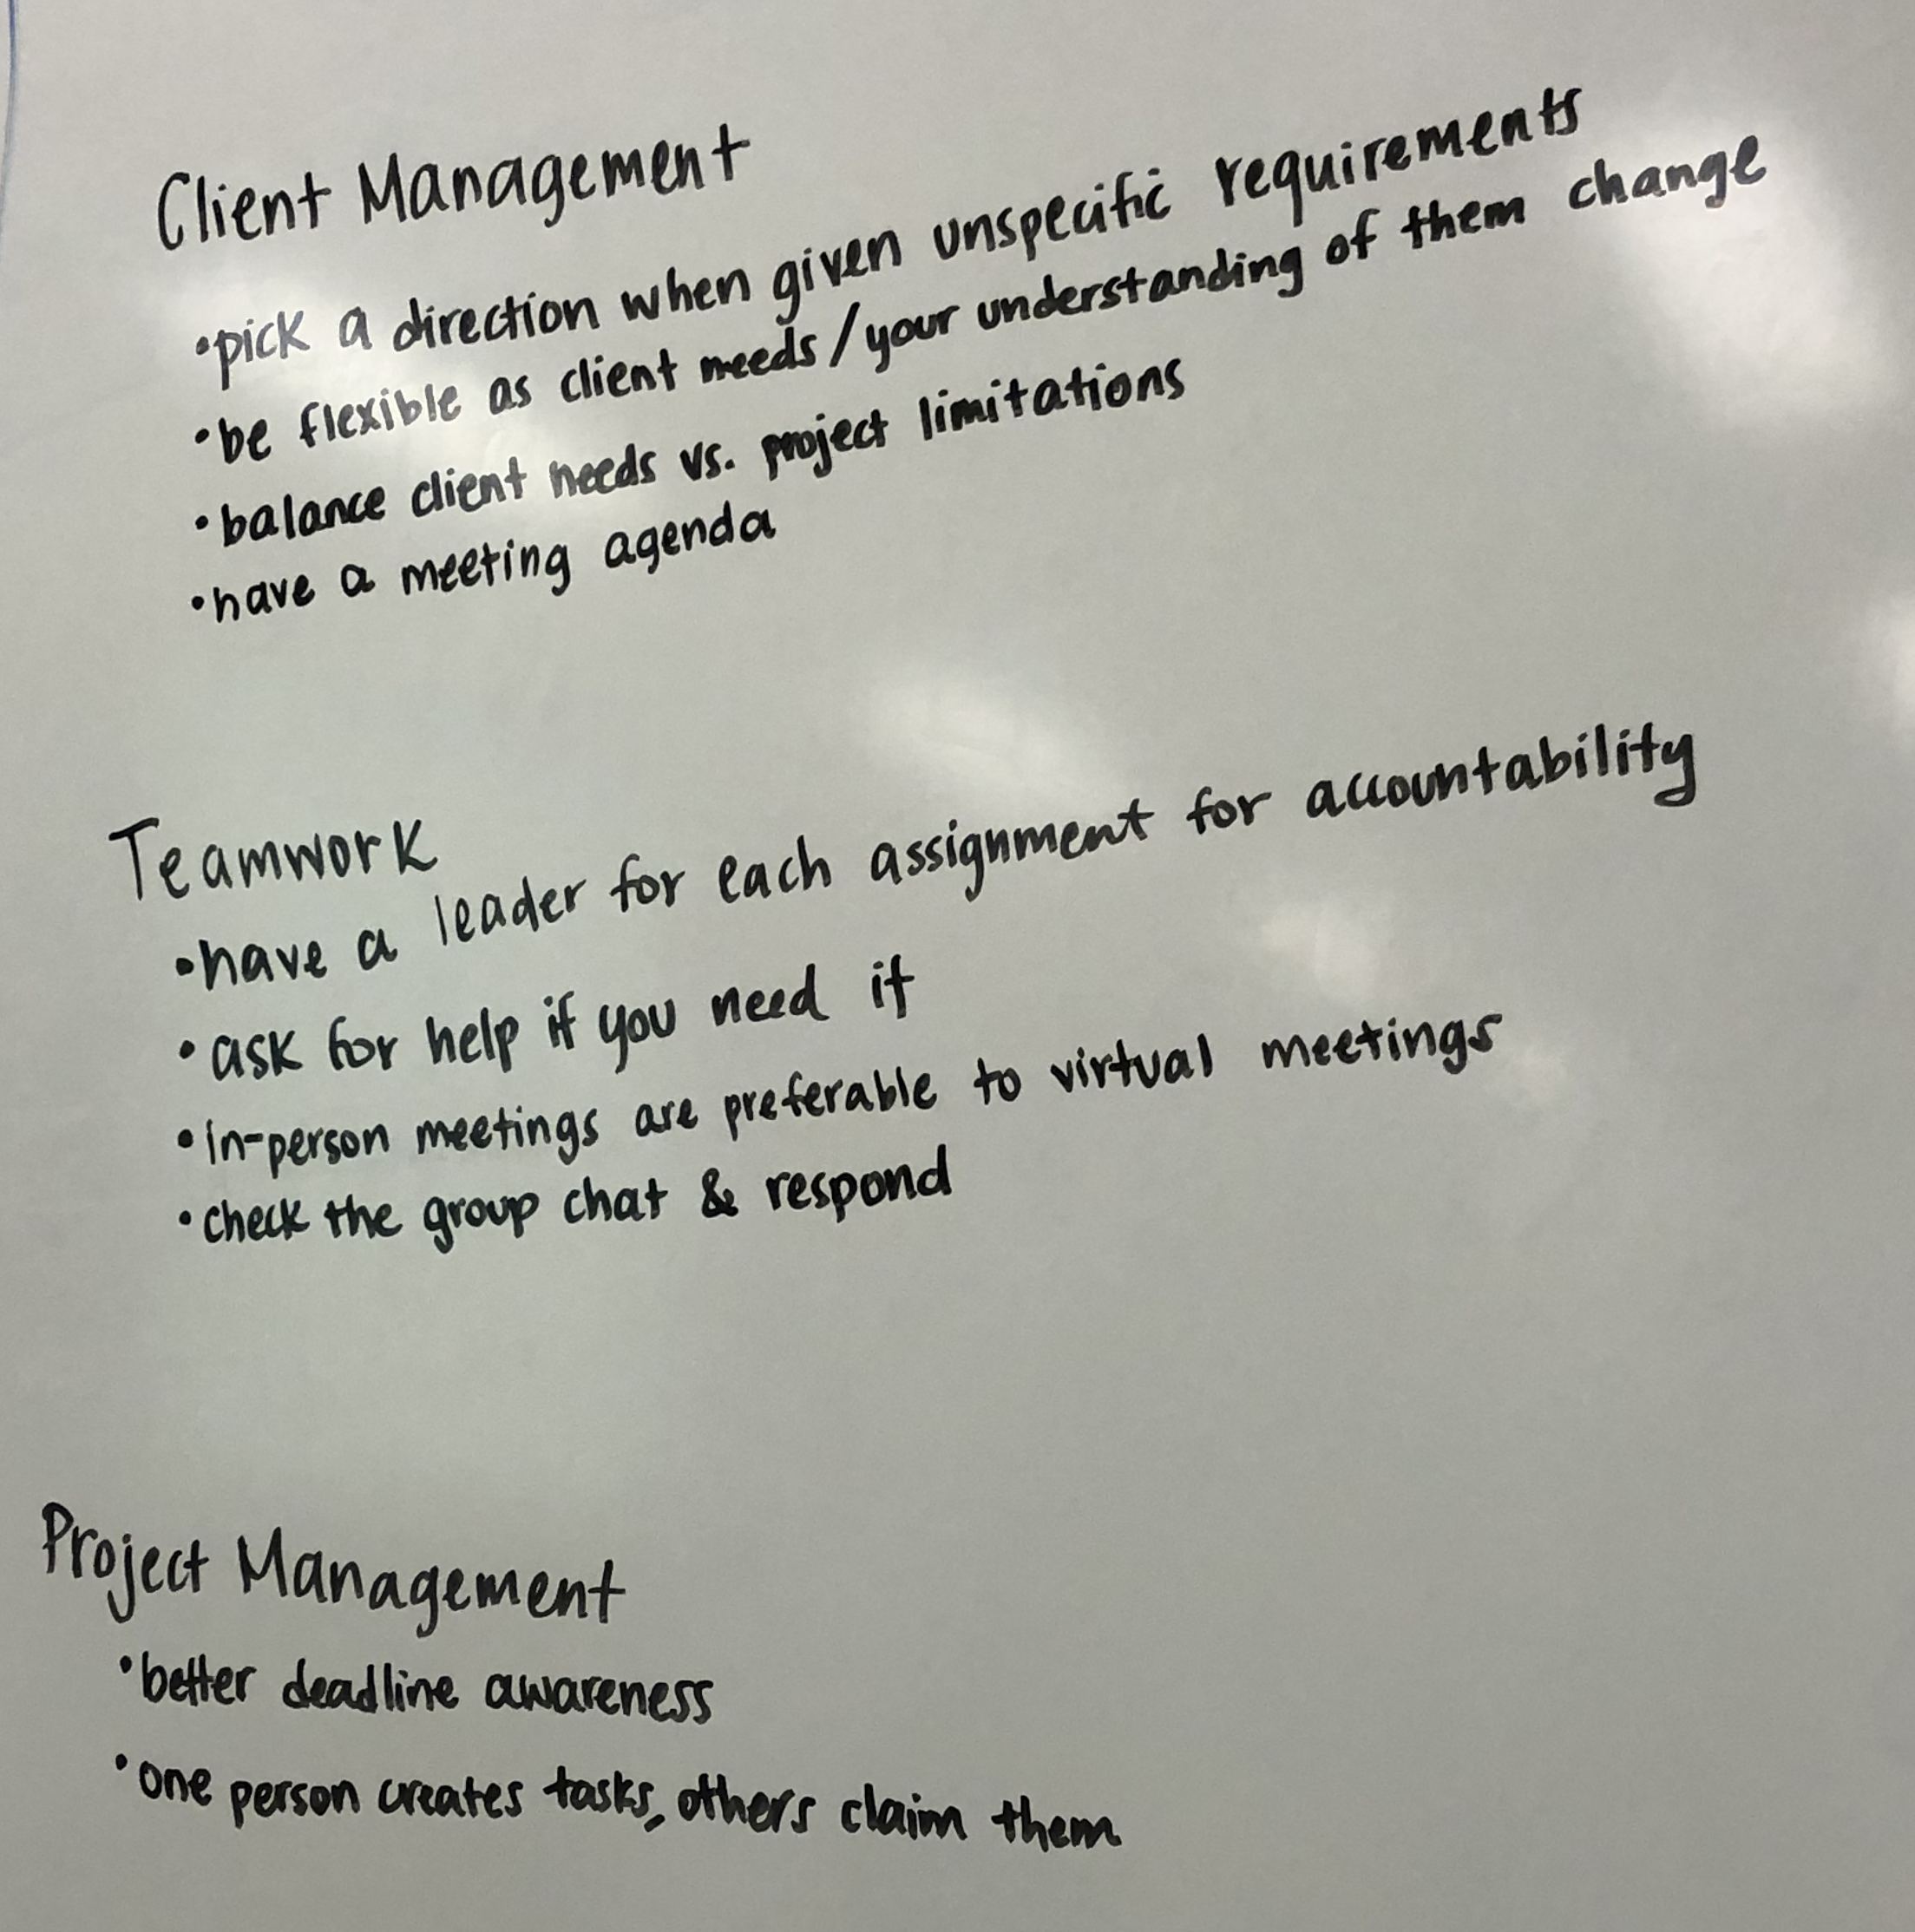 Client Management
•pick a direction when given unspecific requirements
•be flexible as client needs/your understanding of them change
•balance client needs vs. project limitations
•have a meeting agenda
Teamwork
•have a leader for each assignment for accountability
•ask for help if you need it
•in-person meetings are preferable to virtual meetings
•check the group chat & respond
Project Management
•better deadline awareness
•one person creates tasks, others claim them